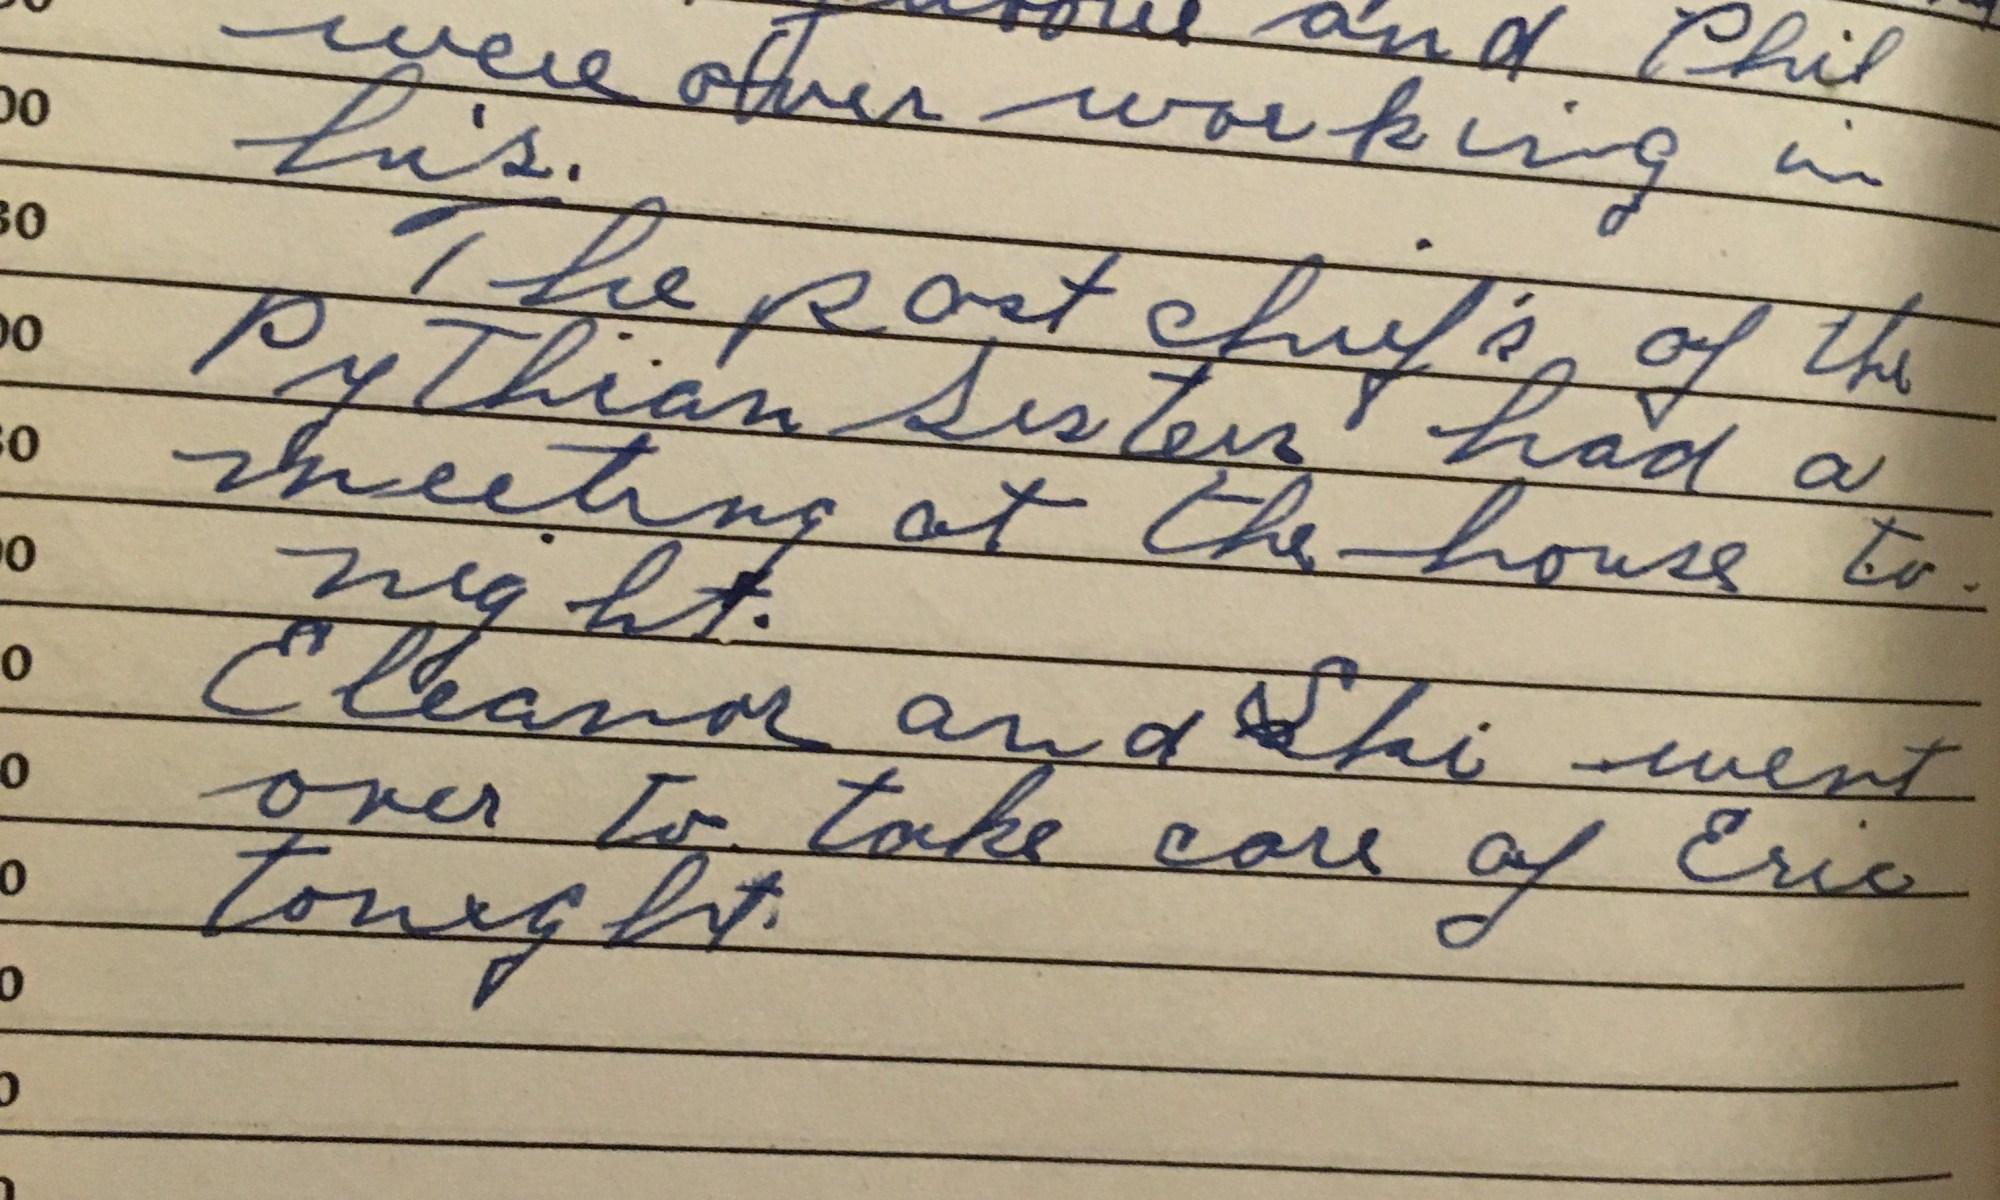 and Phil
were over working in
00 his.
30 The past chief's of the
00 Pythian Sister' had a
30 meeting at the house to-
00 night.
Eleanor and Shi went
over to take care of Eric
tonight.